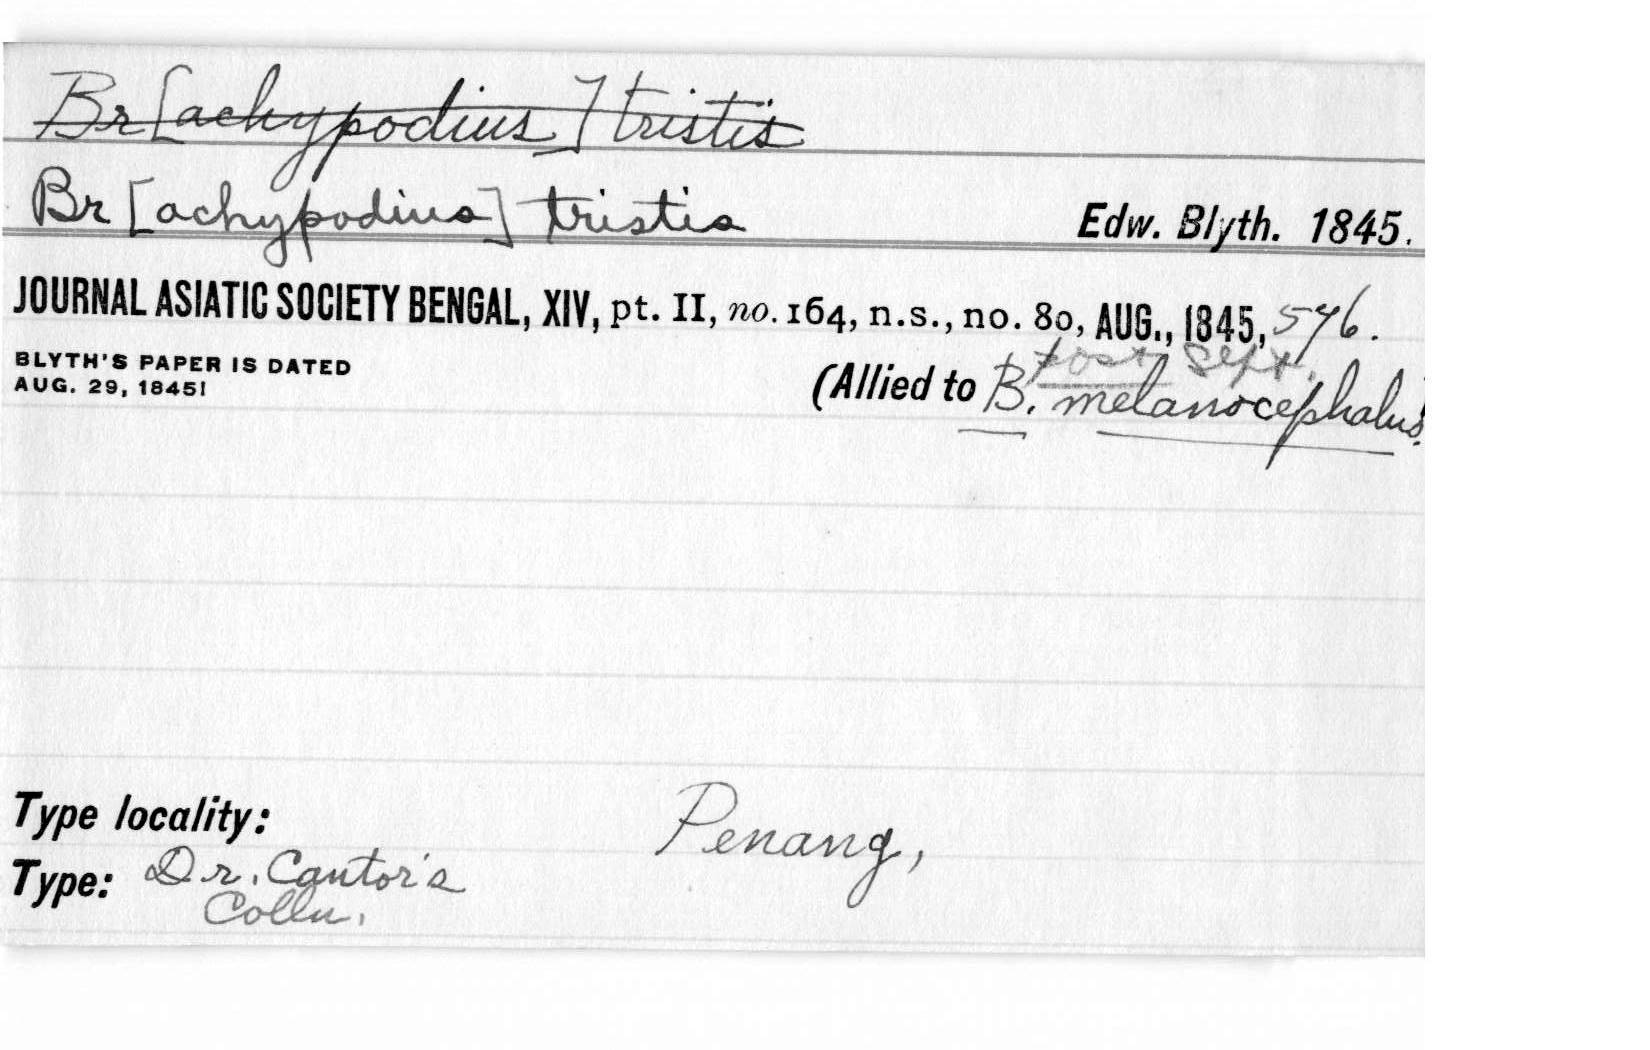 Br[achypodius] tristis
Br[achypodius] tristis Edw. Blyth. 1845.
JOURNAL ASIATIC SOCIETY BENGAL, XIV, pt. II, no. 164, n.s., no. 80, AUG., 1845, 576.
post Sept.
BLYTH'S PAPER IS DATED
AUG. 29, 1845!
(Allied to B. melanocephalus.
Type locality: Penang,
Type: Dr. Cantor's
Colln.